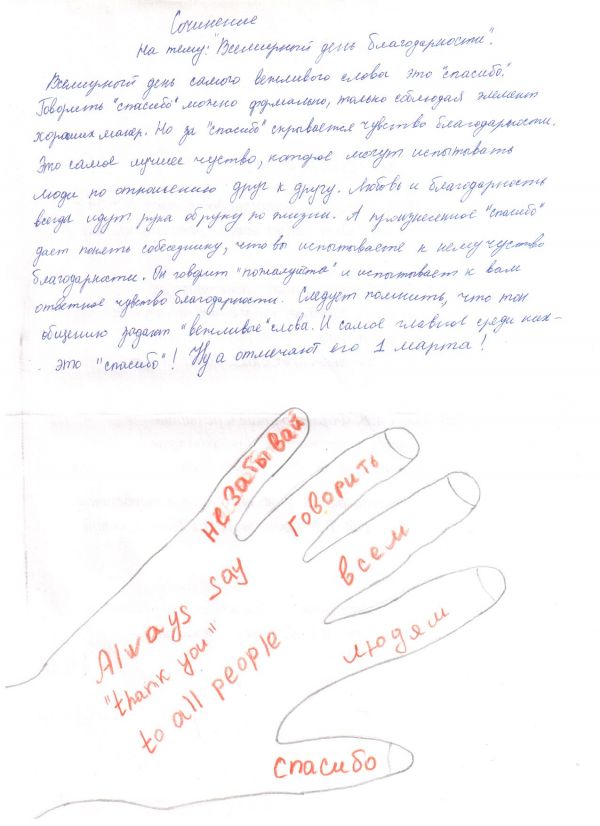 Сочинение
На тему: "Всемирный день благодарности".
Всемирный день самого вежливого слова это "спасибо".
Говорить "спасибо" можно формально, только соблюдая элемент
хороших манер. Но за "спасибо" скрывается чувство благодарности.
Это самое лучшее чуство, которое могут испытывать
люди по отношению друг к другу. Любовь и благодарность
всегда идут рука об руку по жизни. А произнесенное "спасибо"
дает понять собеседнику, что вы испытываете к нему чуство
благодарности. Он говорит "пожалуйста" и испытывает к вам
ответное чувство благодарности. Следует помнить, что тон
общению задают "вежливые" слова. И самое главное среди них-
это "спасибо"! Ну а отмечают его 1 марта!
незабывай
говорить
всем
людям
спасибо
Always say
"thank you"
to all people